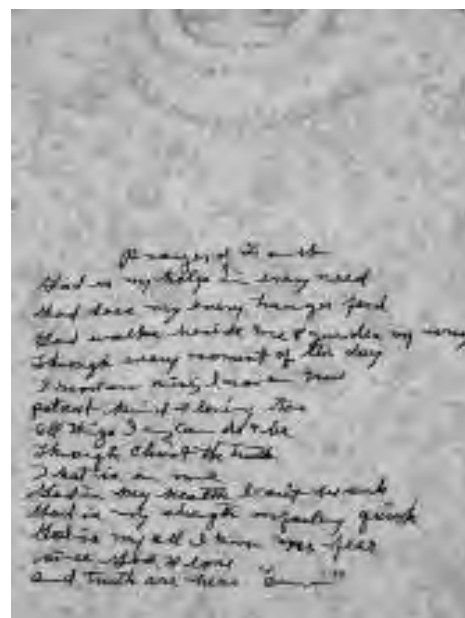 Prayer of Faith
God is my help in every need
God does my every hunger feed
God walks beside me & guides my way
Through every moment of the day
I now am I now am true
patient kind & loving too
All things I am can do & be
Through Christ the truth
That is in me
God is my health I can't be sick
God is my strength unfailing quick
God is my all I know no fear
since God & love
and Truth are here